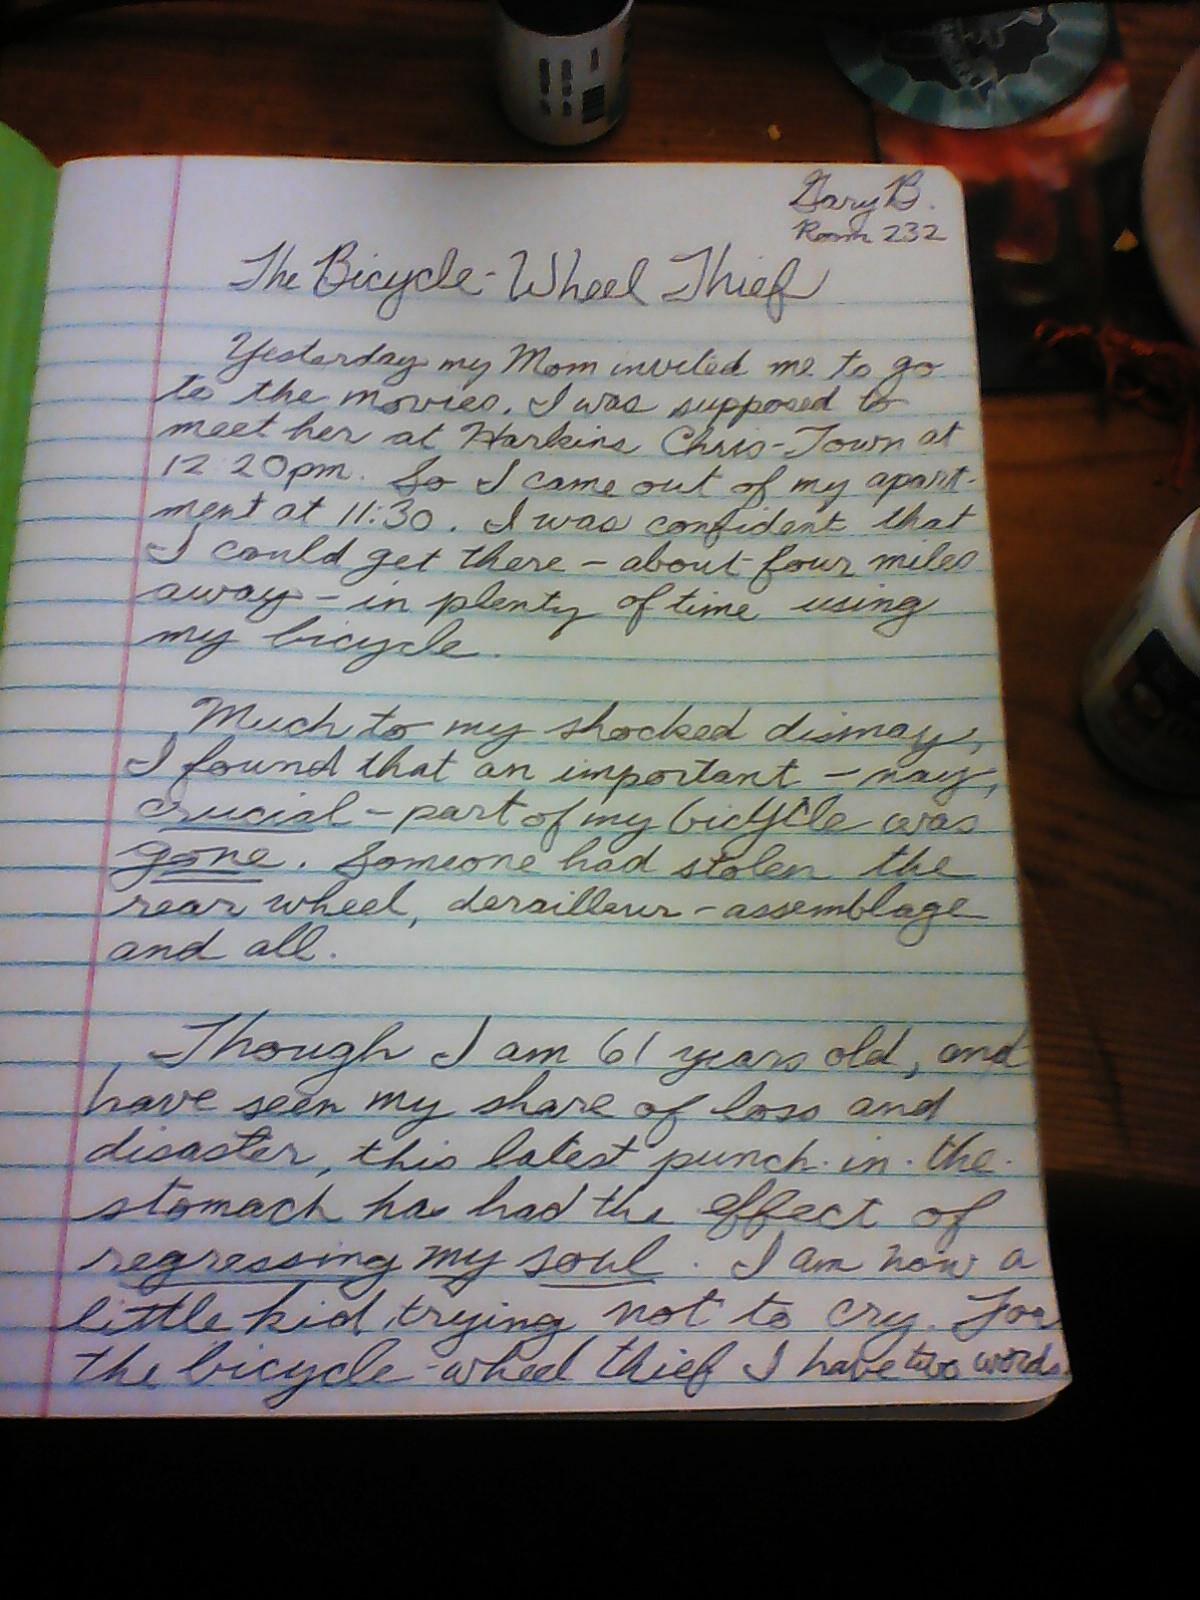 Gary B.
Room 232
The Bicycle-Wheel Thief
Yesterday my Mom invited me to go
to the movies. I was supposed to
meet her at Harkins Chris-Town at
12 20pm. So I came out of my apart-
ment at 11:30. I was confident that
I could get there - about four miles
away - in plenty of time using
my bicycle.
Much to my shocked dismay,
I found that an important - nay,
crucial - part of my bicycle was
gone. Someone had stolen the
rear wheel, derailleur-assemblage
and all.
Though I am 61 years old, and
have seen my share of loss and
disaster, this latest punch-in-the-
stomach has had the effect of
regressing my soul. I am now a
little kid, trying not to cry. For
the bicycle-wheel thief I have two words.